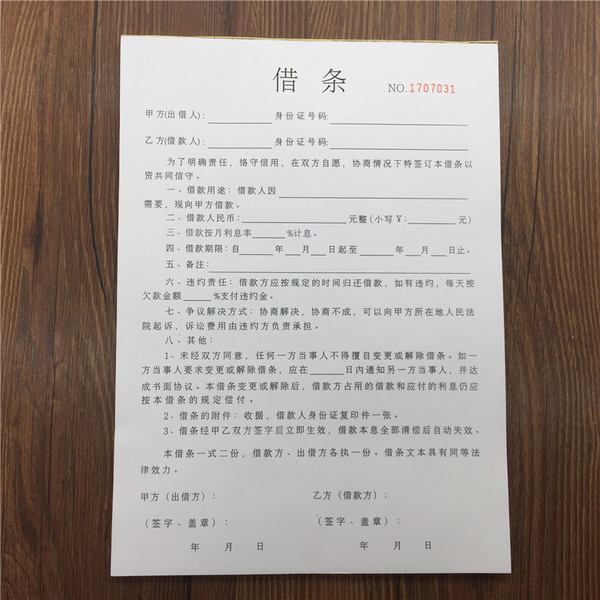 借 条
NO.1707031
甲方(出借人):____________身份证号码:________________________
乙方(借款人):____________身份证号码:________________________
为了明确责任，恪守信用，在双方自愿，协商情况下特签订本借条以
资共同信守。
一、借款用途：借款人因________________________________
需要，现向甲方借款。
二、借款人民币：__________________元整(小写￥:__________元)
三、借款按月利息率______%计息。
四、借款期限：自______年___月___日起至______年___月___日止。
五、备注:________________________________________
六、违约责任：借款方应按规定的时间归还借款，如有违约，每天按
欠款金额_____%支付违约金。
七、争议解决方式：协商解决，协商不成，可以向甲方所在地人民法
院起诉，诉讼费用由违约方负责承担。
八、其他:
1、未经双方同意，任何一方当事人不得擅自变更或解除借条。如一
方当事人要求变更或解除借条，应在______日内通知另一方当事人，并达
成书面协议。本借条变更或解除后，借款方占用的借款和应付的利息仍应
按本借条的规定偿付。
2、借条的附件：收据，借款人身份证复印件一张。
3、借条经甲乙双方签字后立即生效，借款本息全部清偿后自动失效。
本借条一式二份，借款方、出借方各执一份。借条文本具有同等法
律效力。
甲方（出借方）： 乙方（借款方）：
（签字、盖章）： （签字、盖章）：
年 月 日 年 月 日